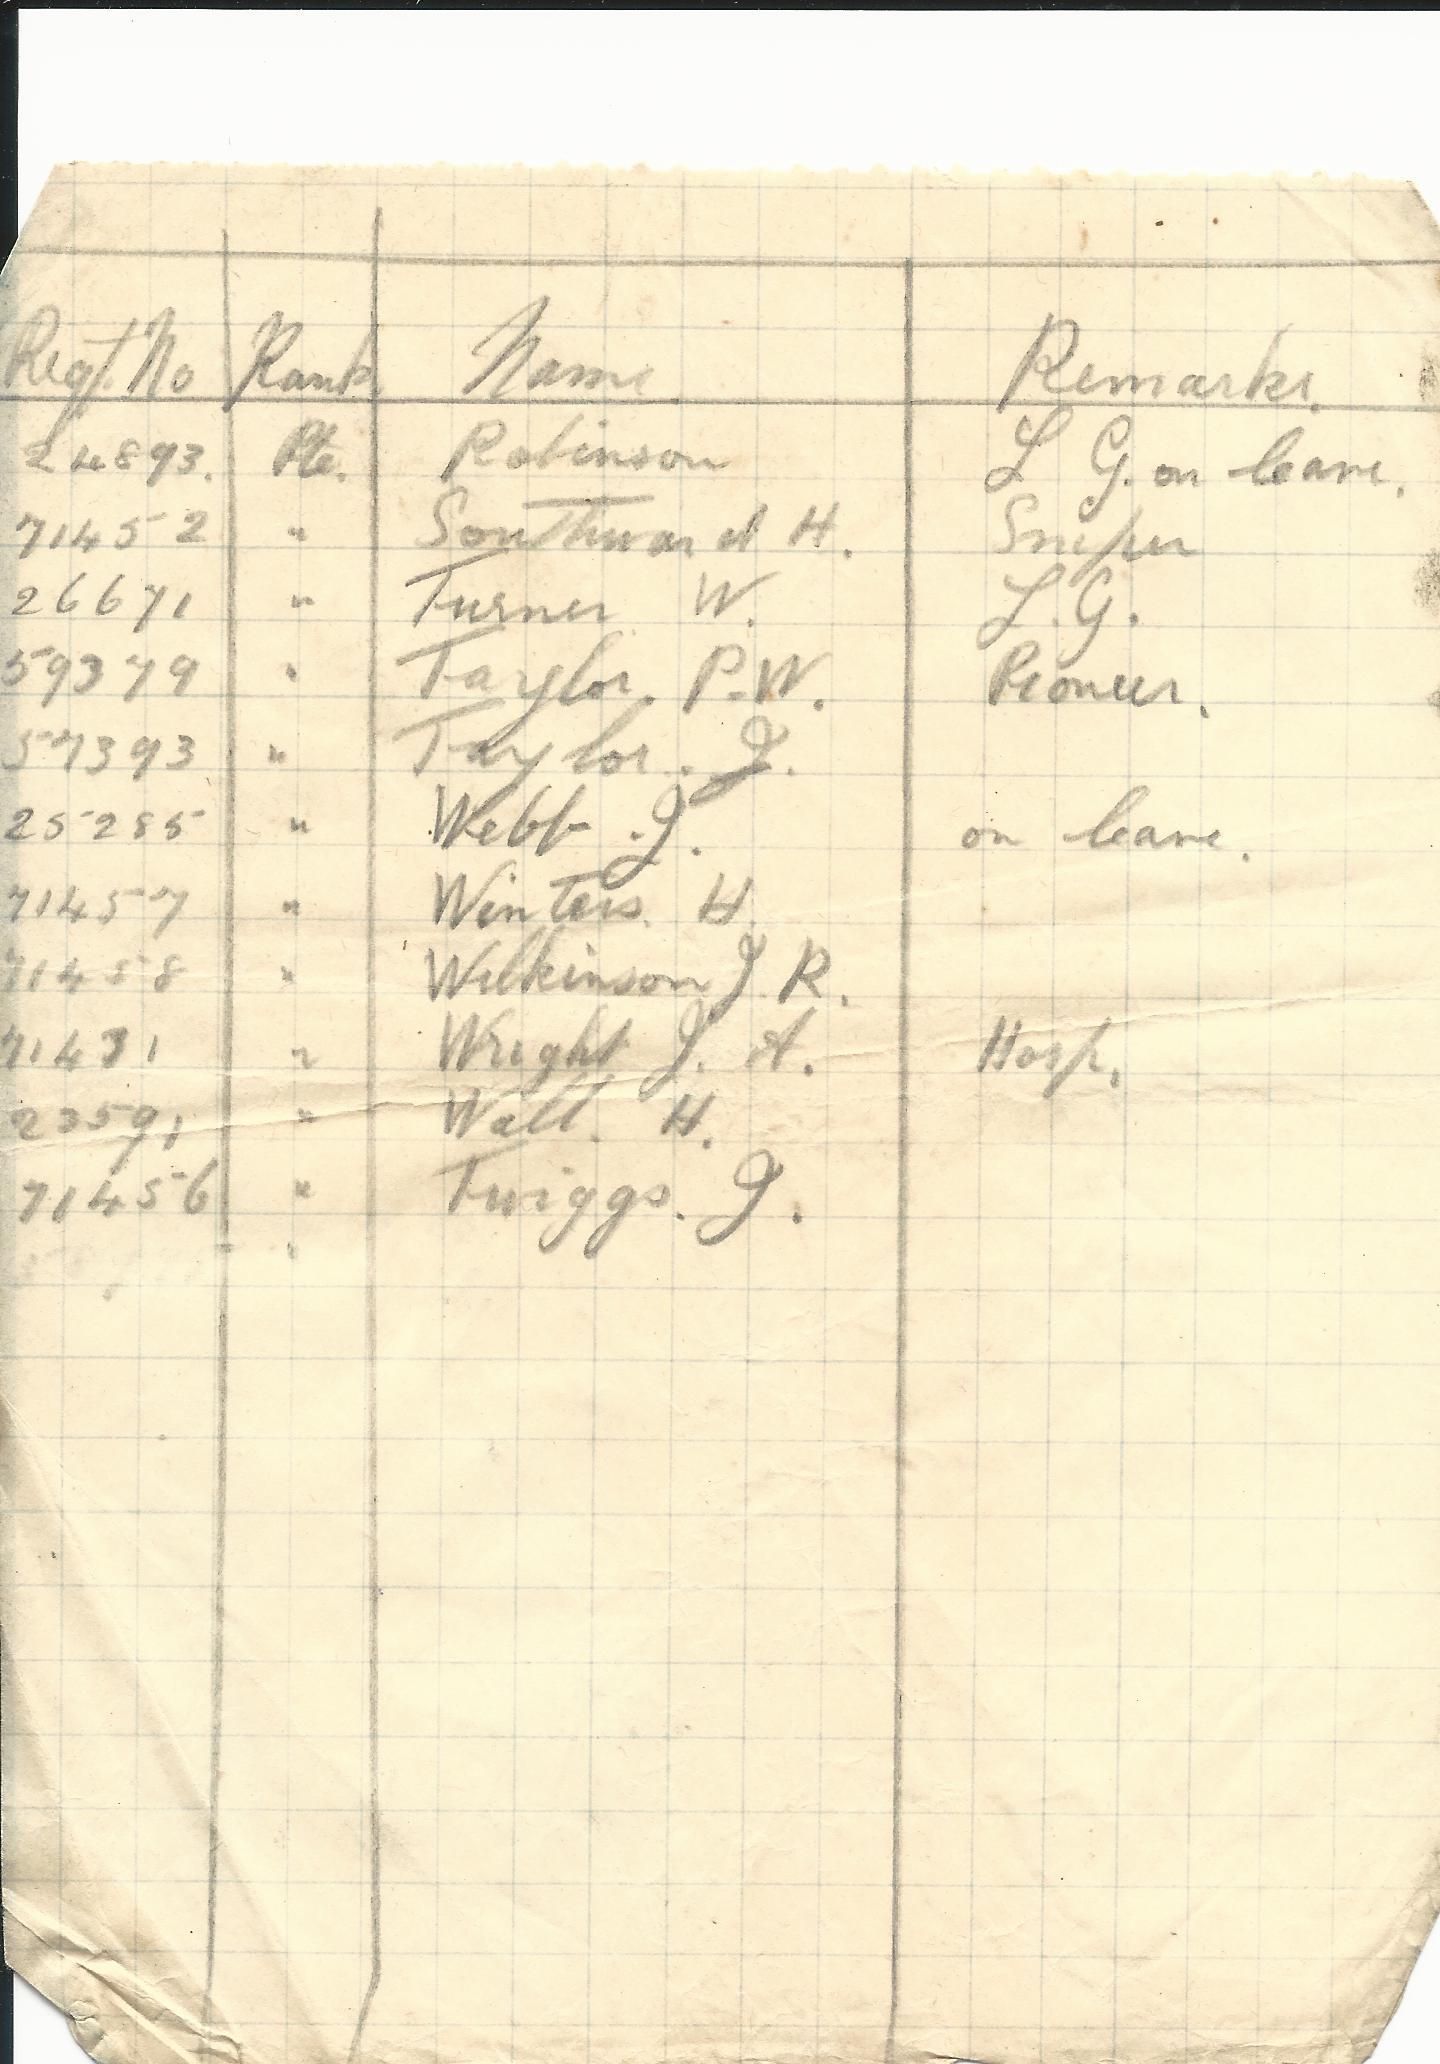 Regt. No Rank Name Remarks.
24893. Pte. Robinson L G. on leave.
71452 " Southward H. Sniper
26671 " Turner W. L. G.
59379 " Taylor. P. W. Pioneer.
57393 " Taylor. J.
25285 " Webb J. on leave.
71457 " Winters. H.
71458 " Wilkinson J R.
71431 " Wright J. A. Hosp.
23591 " Wall. H.
71456 " Twiggs. J.